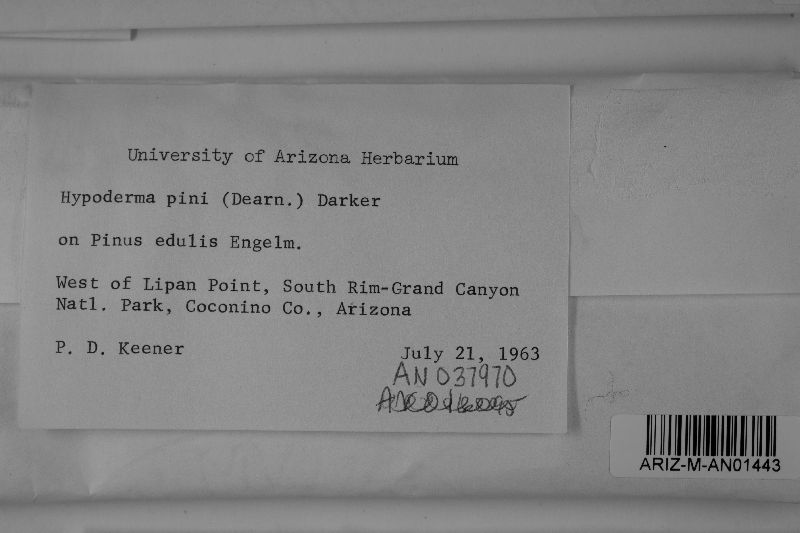 University of Arizona Herbarium
Hypoderma pini (Dearn.) Darker
on Pinus edulis Engelm.
West of Lipan Point, South Rim-Grand Canyon
Natl. Park, Coconino Co., Arizona
P. D. Keener July 21, 1963
AN 037970
ARIZ-M-AN01443